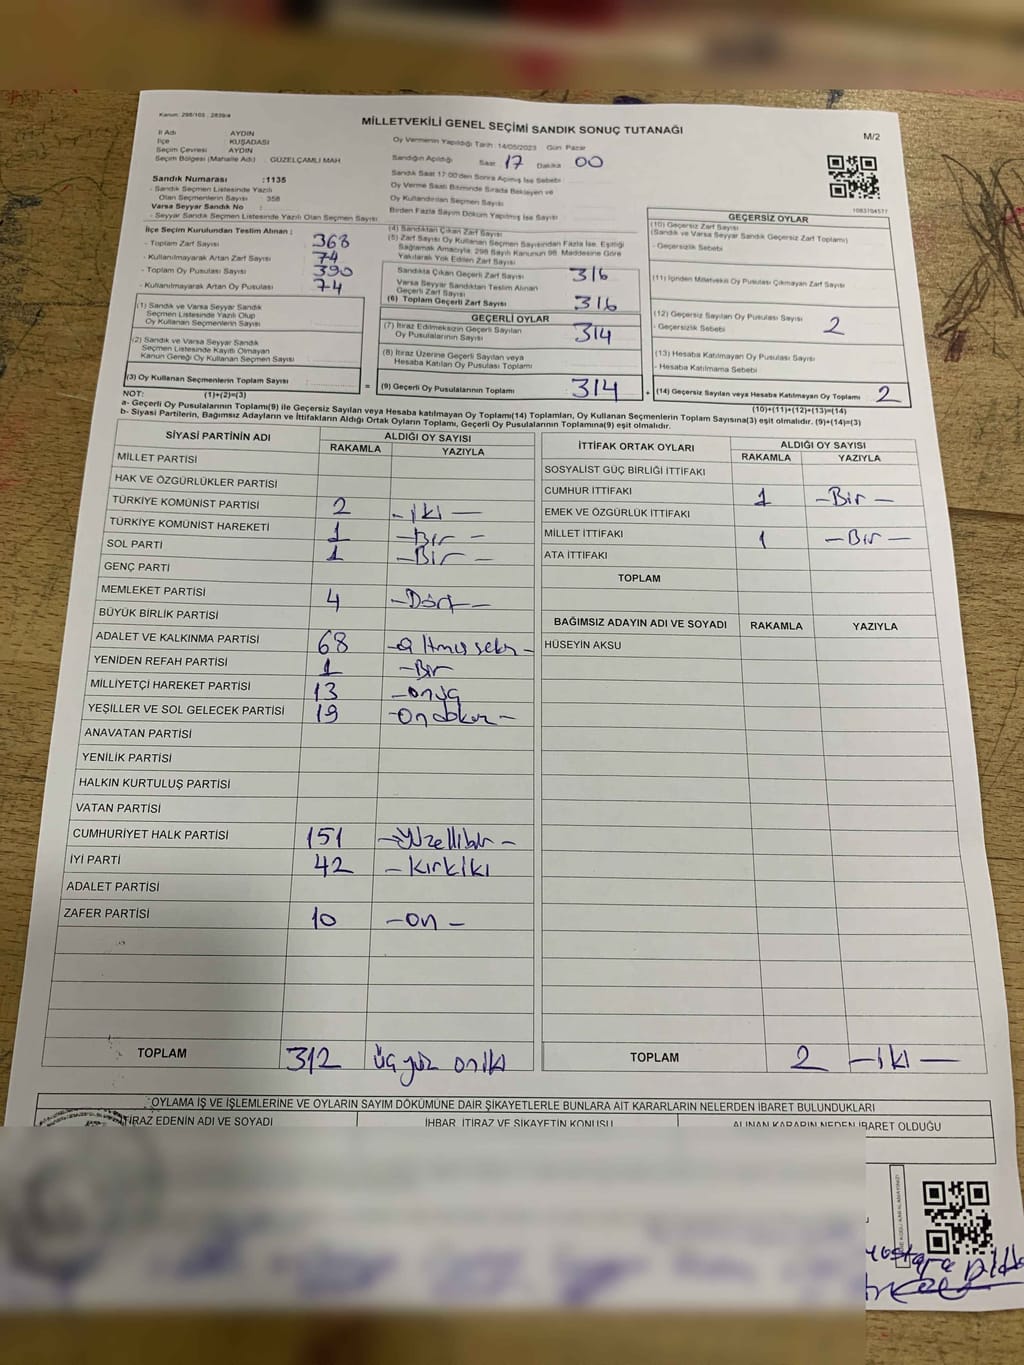 Kanun: 298/105 , 2839/4
MİLLETVEKİLİ GENEL SEÇİMİ SANDIK SONUÇ TUTANAĞI
M/2
İl Adı AYDIN
İlçe KUŞADASI
Seçim Çevresi AYDIN
Seçim Bölgesi (Mahalle Adı) GÜZELÇAMLI MAH
Sandık Numarası :1135
- Sandık Seçmen Listesinde Yazılı
Olan Seçmenlerin Sayısı 358
Varsa Seyyar Sandık No :
- Seyyar Sandık Seçmen Listesinde Yazılı Olan Seçmen Sayısı
Oy Vermenin Yapıldığı Tarih :14/05/2023 Gün Pazar
Sandığın Açıldığı Saat 17 Dakika 00
Sandık Saat 17:00'den Sonra Açılmış İse Sebebi
Oy Verme Saati Bitiminde Sırada Bekleyen ve
Oy Kullandırılan Seçmen Sayısı
Birden Fazla Sayım Döküm Yapılmış İse Sayısı
İlçe Seçim Kurulundan Teslim Alınan ;
- Toplam Zarf Sayısı 368
- Kullanılmayarak Artan Zarf Sayısı 74
- Toplam Oy Pusulası Sayısı 390
- Kullanılmayarak Artan Oy Pusulası 74
(1) Sandık ve Varsa Seyyar Sandık
Seçmen Listesinde Yazılı Olup
Oy Kullanan Seçmenlerin Sayısı
(2) Sandık ve Varsa Seyyar Sandık
Seçmen Listesinde Kayıtlı Olmayan
Kanun Gereği Oy Kullanan Seçmen Sayısı
(3) Oy Kullanan Seçmenlerin Toplam Sayısı
(1)+(2)=(3)
(4) Sandıktan Çıkan Zarf Sayısı
(5) Zarf Sayısı Oy Kullanan Seçmen Sayısından Fazla İse, Eşitliği
Sağlamak Amacıyla, 298 Sayılı Kanunun 98. Maddesine Göre
Yakılarak Yok Edilen Zarf Sayısı
Sandıkta Çıkan Geçerli Zarf Sayısı 316
Varsa Seyyar Sandıktan Teslim Alınan
Geçerli Zarf Sayısı
(6) Toplam Geçerli Zarf Sayısı 316
GEÇERLİ OYLAR
(7) İtiraz Edilmeksizin Geçerli Sayılan
Oy Pusulalarının Sayısı 314
(8) İtiraz Üzerine Geçerli Sayılan veya
Hesaba Katılan Oy Pusulası Toplamı
= (9) Geçerli Oy Pusulalarının Toplamı 314
1083104577
GEÇERSİZ OYLAR
(10) Geçersiz Zarf Sayısı
(Sandık ve Varsa Seyyar Sandık Geçersiz Zarf Toplamı)
- Geçersizlik Sebebi
(11) İçinden Milletvekili Oy Pusulası Çıkmayan Zarf Sayısı
(12) Geçersiz Sayılan Oy Pusulası Sayısı 2
- Geçersizlik Sebebi
(13) Hesaba Katılmayan Oy Pusulası Sayısı
- Hesaba Katılmama Sebebi
+ (14) Geçersiz Sayılan veya Hesaba Katılmayan Oy Toplamı 2
(10)+(11)+(12)+(13)=(14)
NOT:
a- Geçerli Oy Pusulalarının Toplamı(9) ile Geçersiz Sayılan veya Hesaba katılmayan Oy Toplamı(14) Toplamları, Oy Kullanan Seçmenlerin Toplam Sayısına(3) eşit olmalıdır. (9)+(14)=(3)
b- Siyasi Partilerin, Bağımsız Adayların ve İttifakların Aldığı Ortak Oyların Toplamı, Geçerli Oy Pusulalarının Toplamına(9) eşit olmalıdır.
SİYASİ PARTİNİN ADI ALDIĞI OY SAYISI
RAKAMLA YAZIYLA
MİLLET PARTİSİ
HAK VE ÖZGÜRLÜKLER PARTİSİ
TÜRKİYE KOMÜNİST PARTİSİ 2 -iki-
TÜRKİYE KOMÜNİST HAREKETİ 1 -Bir-
SOL PARTİ 1 -Bir-
GENÇ PARTİ
MEMLEKET PARTİSİ 4 -Dört-
BÜYÜK BİRLİK PARTİSİ
ADALET VE KALKINMA PARTİSİ 68 -altmışsekiz-
YENİDEN REFAH PARTİSİ 1 -Bir
MİLLİYETÇİ HAREKET PARTİSİ 13 -onüç
YEŞİLLER VE SOL GELECEK PARTİSİ 19 -Ondokuz-
ANAVATAN PARTİSİ
YENİLİK PARTİSİ
HALKIN KURTULUŞ PARTİSİ
VATAN PARTİSİ
CUMHURİYET HALK PARTİSİ 151 -Yüzellibir-
İYİ PARTİ 42 -Kırkiki
ADALET PARTİSİ
ZAFER PARTİSİ 10 -on-
TOPLAM 312 üçyüz oniki
İTTİFAK ORTAK OYLARI ALDIĞI OY SAYISI
RAKAMLA YAZIYLA
SOSYALİST GÜÇ BİRLİĞİ İTTİFAKI
CUMHUR İTTİFAKI 1 -Bir-
EMEK VE ÖZGÜRLÜK İTTİFAKI
MİLLET İTTİFAKI 1 -Bir-
ATA İTTİFAKI
TOPLAM
BAĞIMSIZ ADAYIN ADI VE SOYADI RAKAMLA YAZIYLA
HÜSEYİN AKSU
TOPLAM 2 -iki-
OYLAMA İŞ VE İŞLEMLERİNE VE OYLARIN SAYIM DÖKÜMÜNE DAİR ŞİKAYETLERLE BUNLARA AİT KARARLARIN NELERDEN İBARET BULUNDUKLARI
İTİRAZ EDENİN ADI VE SOYADI İHBAR, İTİRAZ VE ŞİKAYETİN KONUSU ALINAN KARARIN NEDEN İBARET OLDUĞU